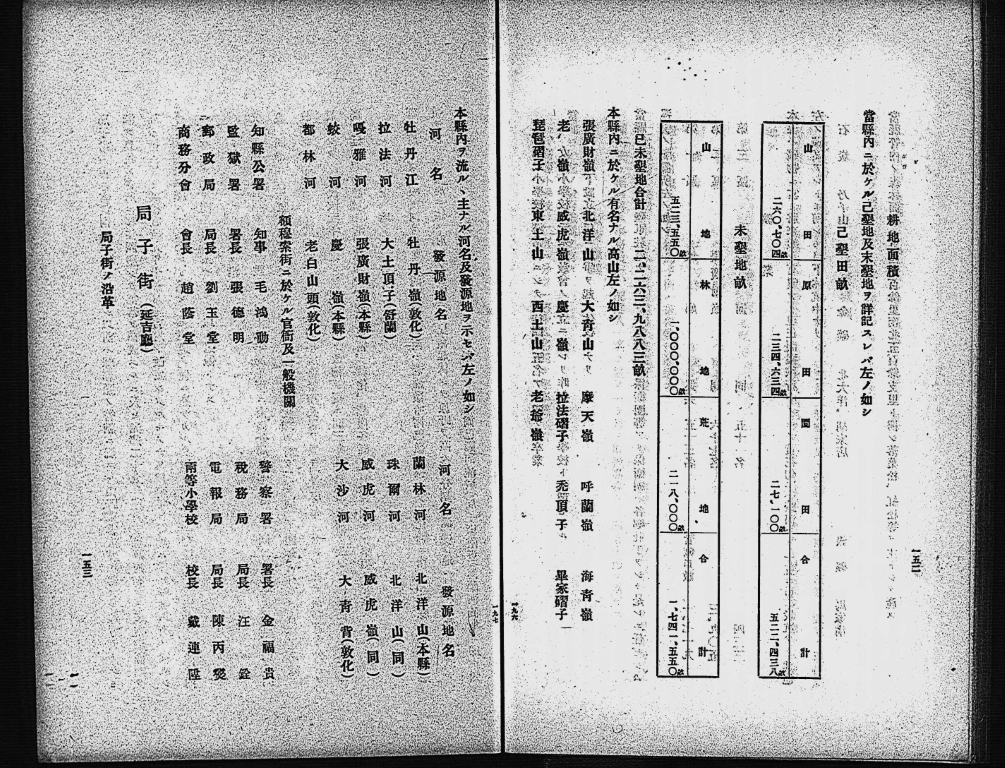 一五二
耕地面積
當縣內ニ於ケル己墾地及未墾地ヲ詳記スレバ左ノ如シ
己墾田畝
山田 原田 園田 合計
二六〇、七〇四畝 二三四、六三四畝 二七、一〇〇畝 五二二、四三八畝
未墾地畝
山地 林地 荒地 合計
五二三、五五〇畝 一、〇〇〇、〇〇〇畝 二一八、〇〇〇畝 一、七四一、五五〇畝
當縣已未墾地合計 二、二六三、九八八畝
本縣內ニ於ケル有名ナル高山左ノ如シ
張廣財嶺 北洋山 大青山 摩天嶺 呼蘭嶺 海青嶺
老嶺 威虎嶺 慶嶺 拉法磖子 禿頂子 畢家磖子
琵琶磖子 東土山 西土山 老爺嶺
一九六
一九七
本縣內ヲ流ルヽ主ナル河名及發源地ヲ示セバ左ノ如シ
河名 發源地名 河名 發源地名
牡丹江 牡丹嶺(敦化) 蘭林河 北洋山(本縣)
拉法河 大土頂子(舒蘭) 珠爾河 北洋山(同)
嘎雅河 張廣財嶺(本縣) 威虎河 威虎嶺(同)
蛟河 慶嶺(本縣) 大沙河 大青背(敦化)
都林河 老白山頭(敦化)
額穆索街ニ於ケル官衙及一般機關
知縣公署 知事 毛鴻勳 警察署 署長 金福貴
監獄署 署長 張德明 稅務局 局長 汪銓
郵政局 局長 劉玉堂 電報局 局長 陳丙燮
商務分會 會長 趙蔭堂 兩等小學校 校長 戴連陞
局子街(延吉廳)
局子街ノ沿革
一五三